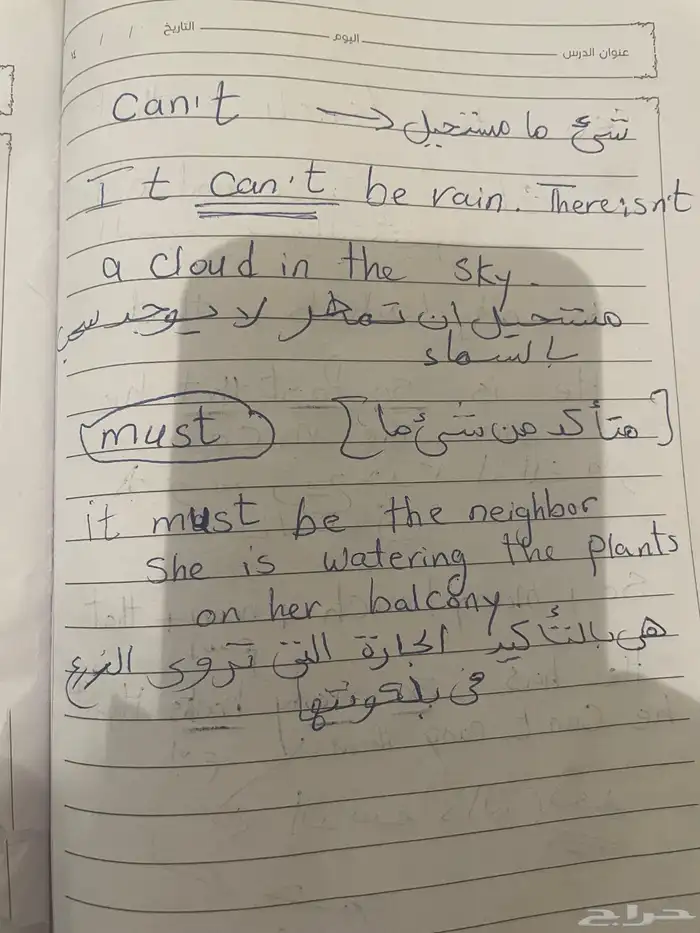 عنوان الدرس اليوم التاريخ / /
can't → شئ ما مستحيل
It can't be rain. There isn't
a cloud in the sky.
مستحيل ان تمطر لا يوجد سحب
بالسماء
must [متأكد من شئ ما]
it must be the neighbor
She is watering the plants
on her balcony.
هي بالتأكيد الجارة التي تروى الزرع
في بلكونتها
حراج